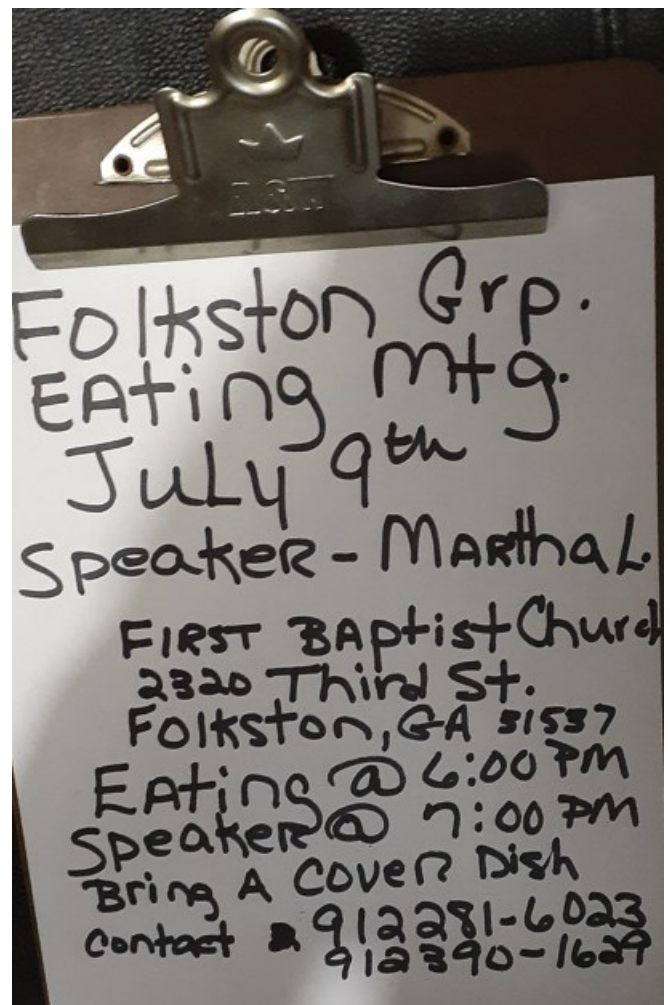 Folkston Grp.
EAting mtg.
July 9th
Speaker - Martha L.
FIRST BAptist Church
2320 Third St.
Folkston, GA 31537
EAting @ 6:00 PM
Speaker @ 7:00 PM
Bring A Cover Dish
contact 912281-6023
912390-1629